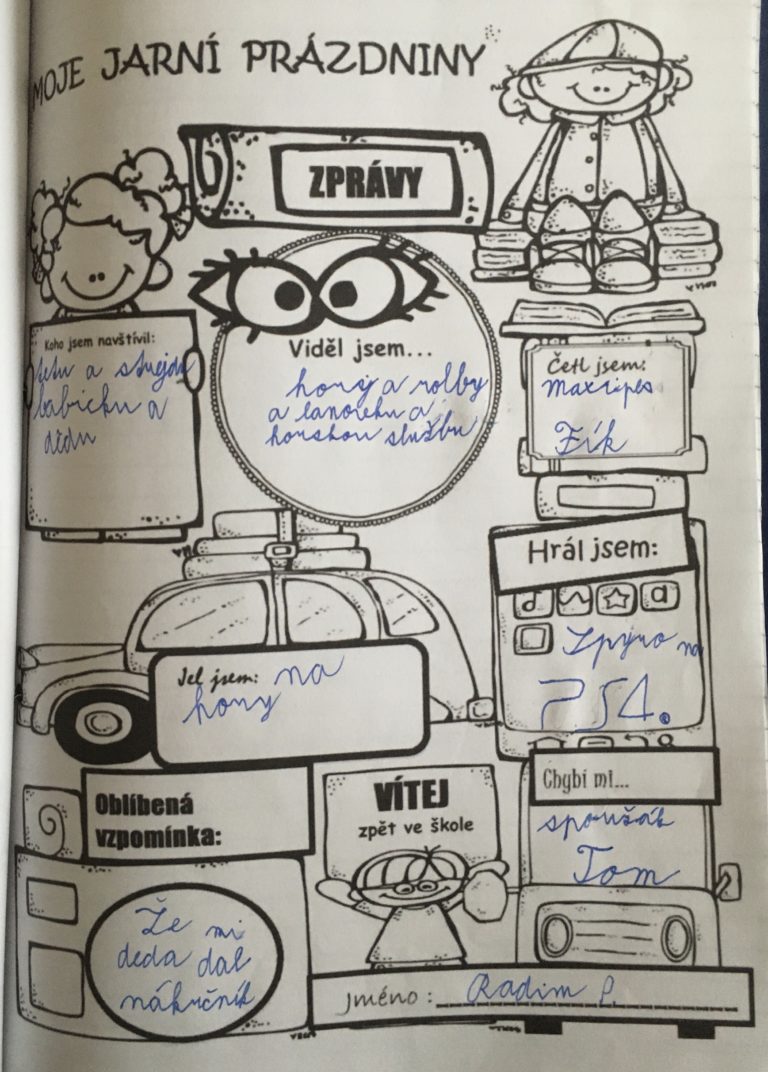 MOJE JARNÍ PRÁZDNINY
ZPRÁVY
Koho jsem navštívil:
tetu a strejdu
babičku a
dědu
Viděl jsem...
hory a rolby
a lanovku a
horskou službu
Četl jsem:
Maxipes
Fík
Hrál jsem:
na
PS4.
Jel jsem: na
hory
Oblíbená
vzpomínka:
Že mi
deda dal
nákrčník
VÍTEJ
zpět ve škole
Chybí mi...
spolužák
Tom
Jméno: Radim P.